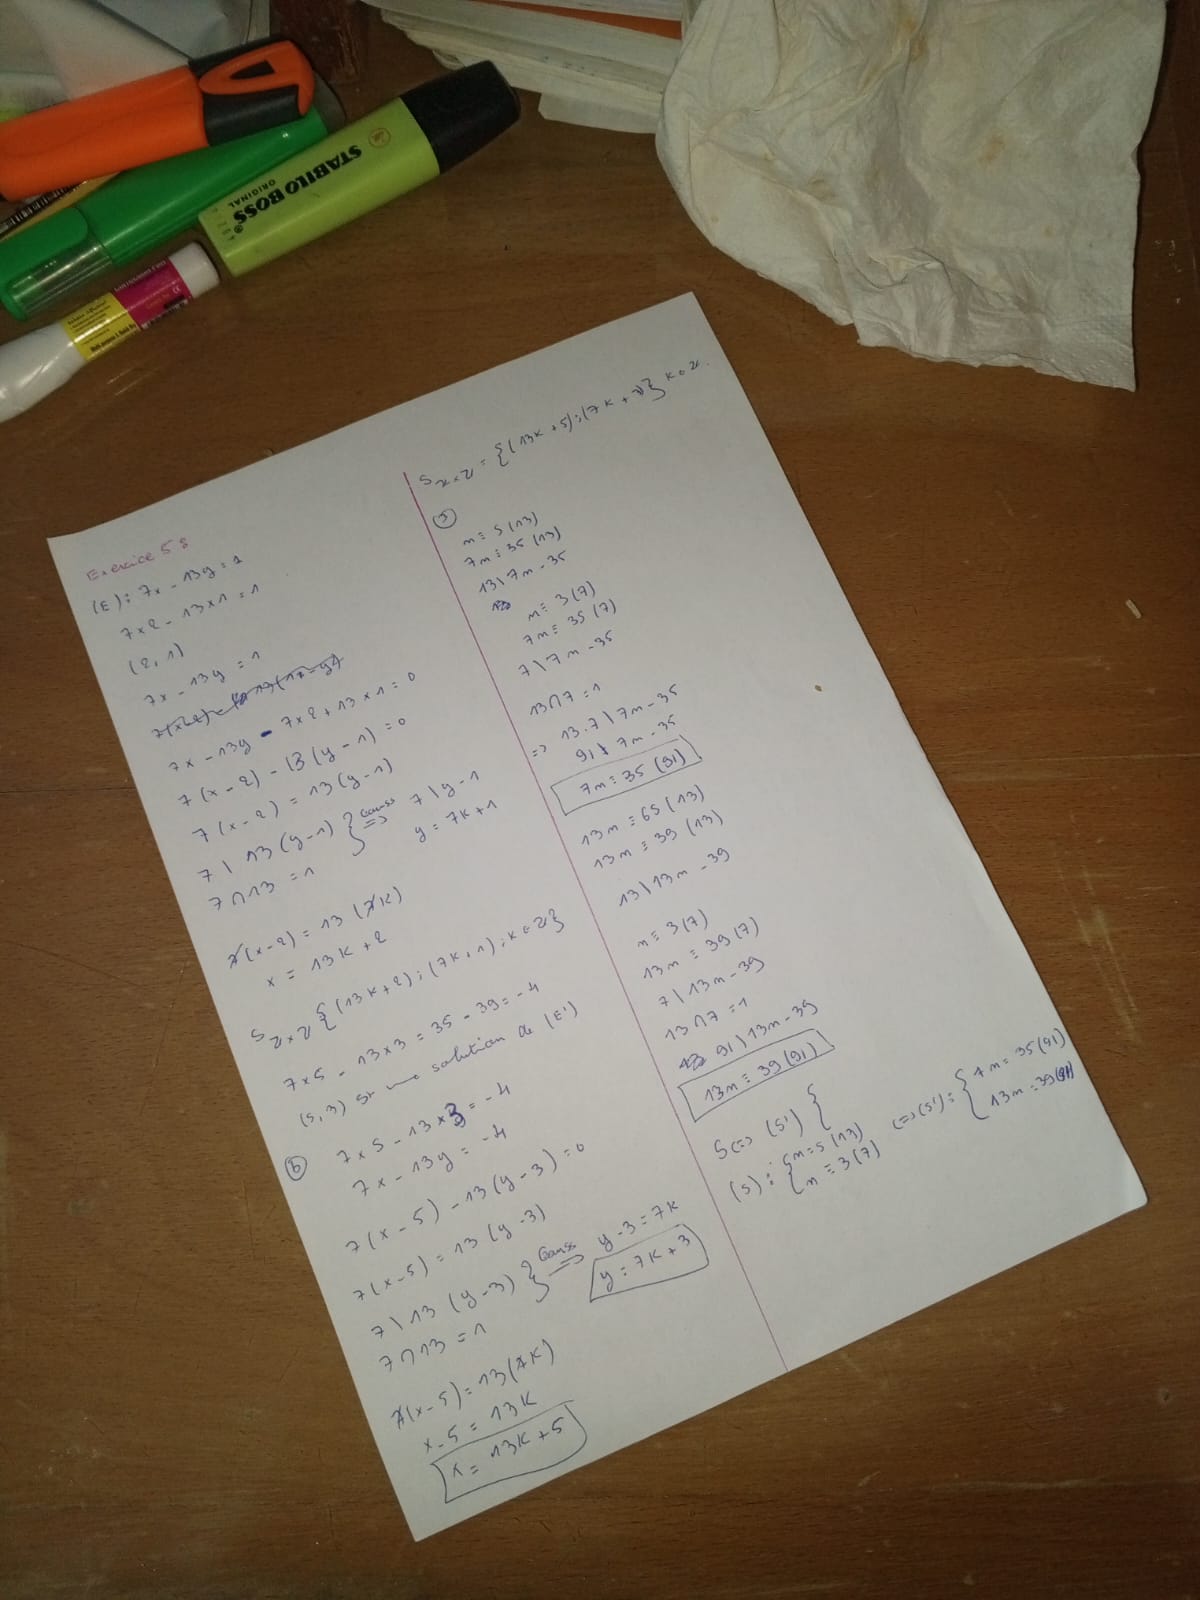 STABILO BOSS
ORIGINAL
Exercice 5 :
(E) : 7x - 13y = 1
7×2 - 13×1 = 1
(2, 1)
7x - 13y = 1
7x - 13y - 7×2 + 13×1 = 0
7(x - 2) - 13(y - 1) = 0
7(x - 2) = 13(y - 1)
7 \ 13(y - 1) } Gauss => 7 \ y - 1
7 ∩ 13 = 1 y = 7k + 1
7(x - 2) = 13(7k)
x = 13k + 2
S ℤ×ℤ {(13k + 2) ; (7k + 1) ; k ∈ ℤ}
7×5 - 13×3 = 35 - 39 = -4
(5, 3) st une solution de (E')
(b) 7×5 - 13×3 = -4
7x - 13y = -4
7(x - 5) - 13(y - 3) = 0
7(x - 5) = 13(y - 3)
7 \ 13(y - 3) } Gauss => y - 3 = 7k
7 ∩ 13 = 1 y = 7k + 3
7(x - 5) = 13(7k)
x - 5 = 13k
x = 13k + 5
S ℤ×ℤ = {(13k + 5) ; (7k + 3)} k ∈ ℤ.
n ≡ 5 (13)
7n ≡ 35 (13)
13 \ 7n - 35
n ≡ 3 (7)
7n ≡ 35 (7)
7 \ 7n - 35
13 ∩ 7 = 1
=> 13.7 \ 7n - 35
91 \ 7n - 35
7n ≡ 35 (91)
13n ≡ 65 (13)
13n ≡ 39 (13)
13 \ 13n - 39
n ≡ 3 (7)
13n ≡ 39 (7)
7 \ 13n - 39
13 ∩ 7 = 1
91 \ 13n - 39
13n ≡ 39 (91)
S <=> (S') {
(S) : { n ≡ 5 (13)
n ≡ 3 (7)
<=> (S') : { 7n ≡ 35 (91)
13n ≡ 39 (91)